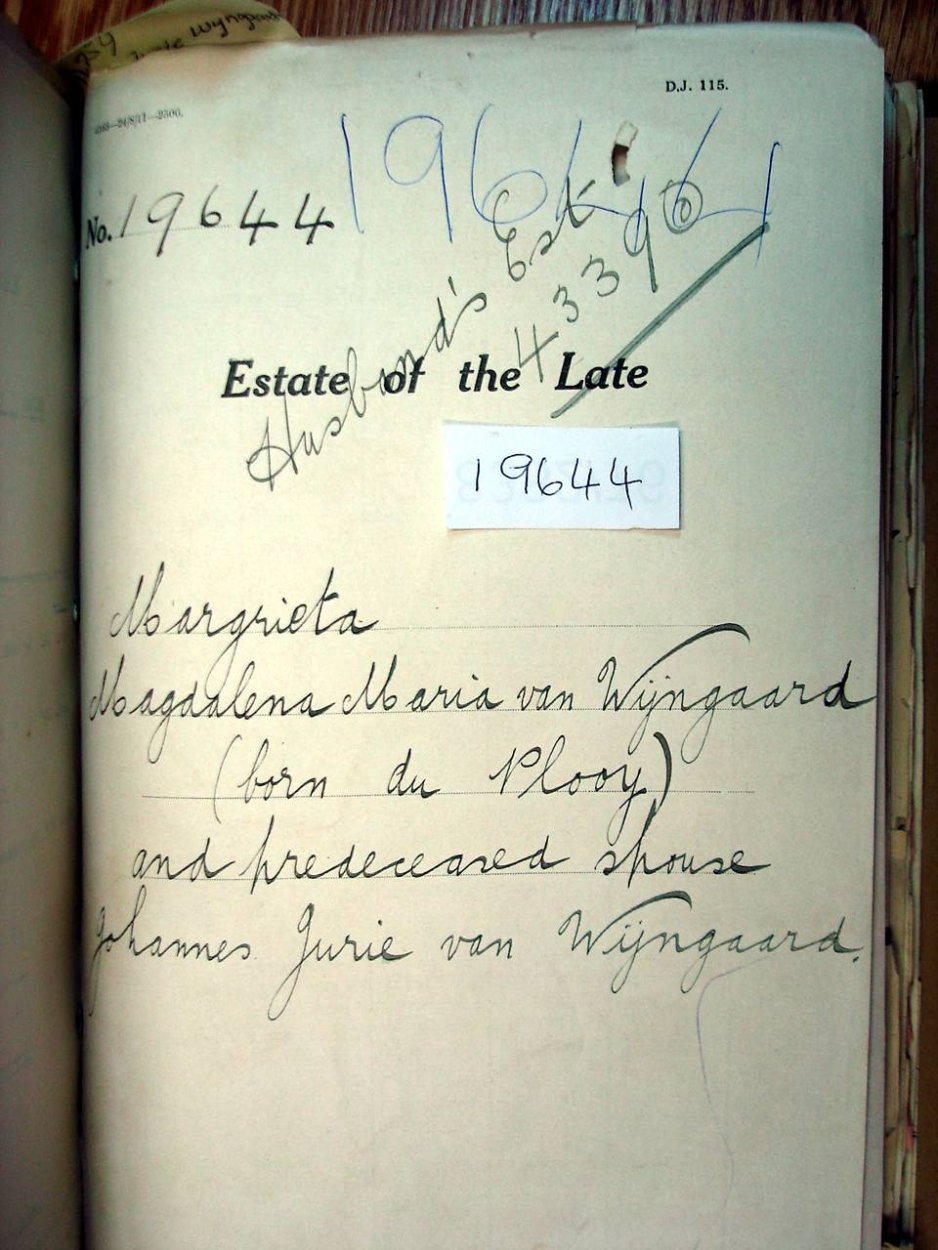 Wyngaard
D.J. 115.
No. 19644
19644
Husband's Est.
4339
Estate of the Late
19644
Margrieta
Magdalena Maria van Wijngaard
(born du Plooy)
and predeceased spouse
Johannes Jurie van Wijngaard.